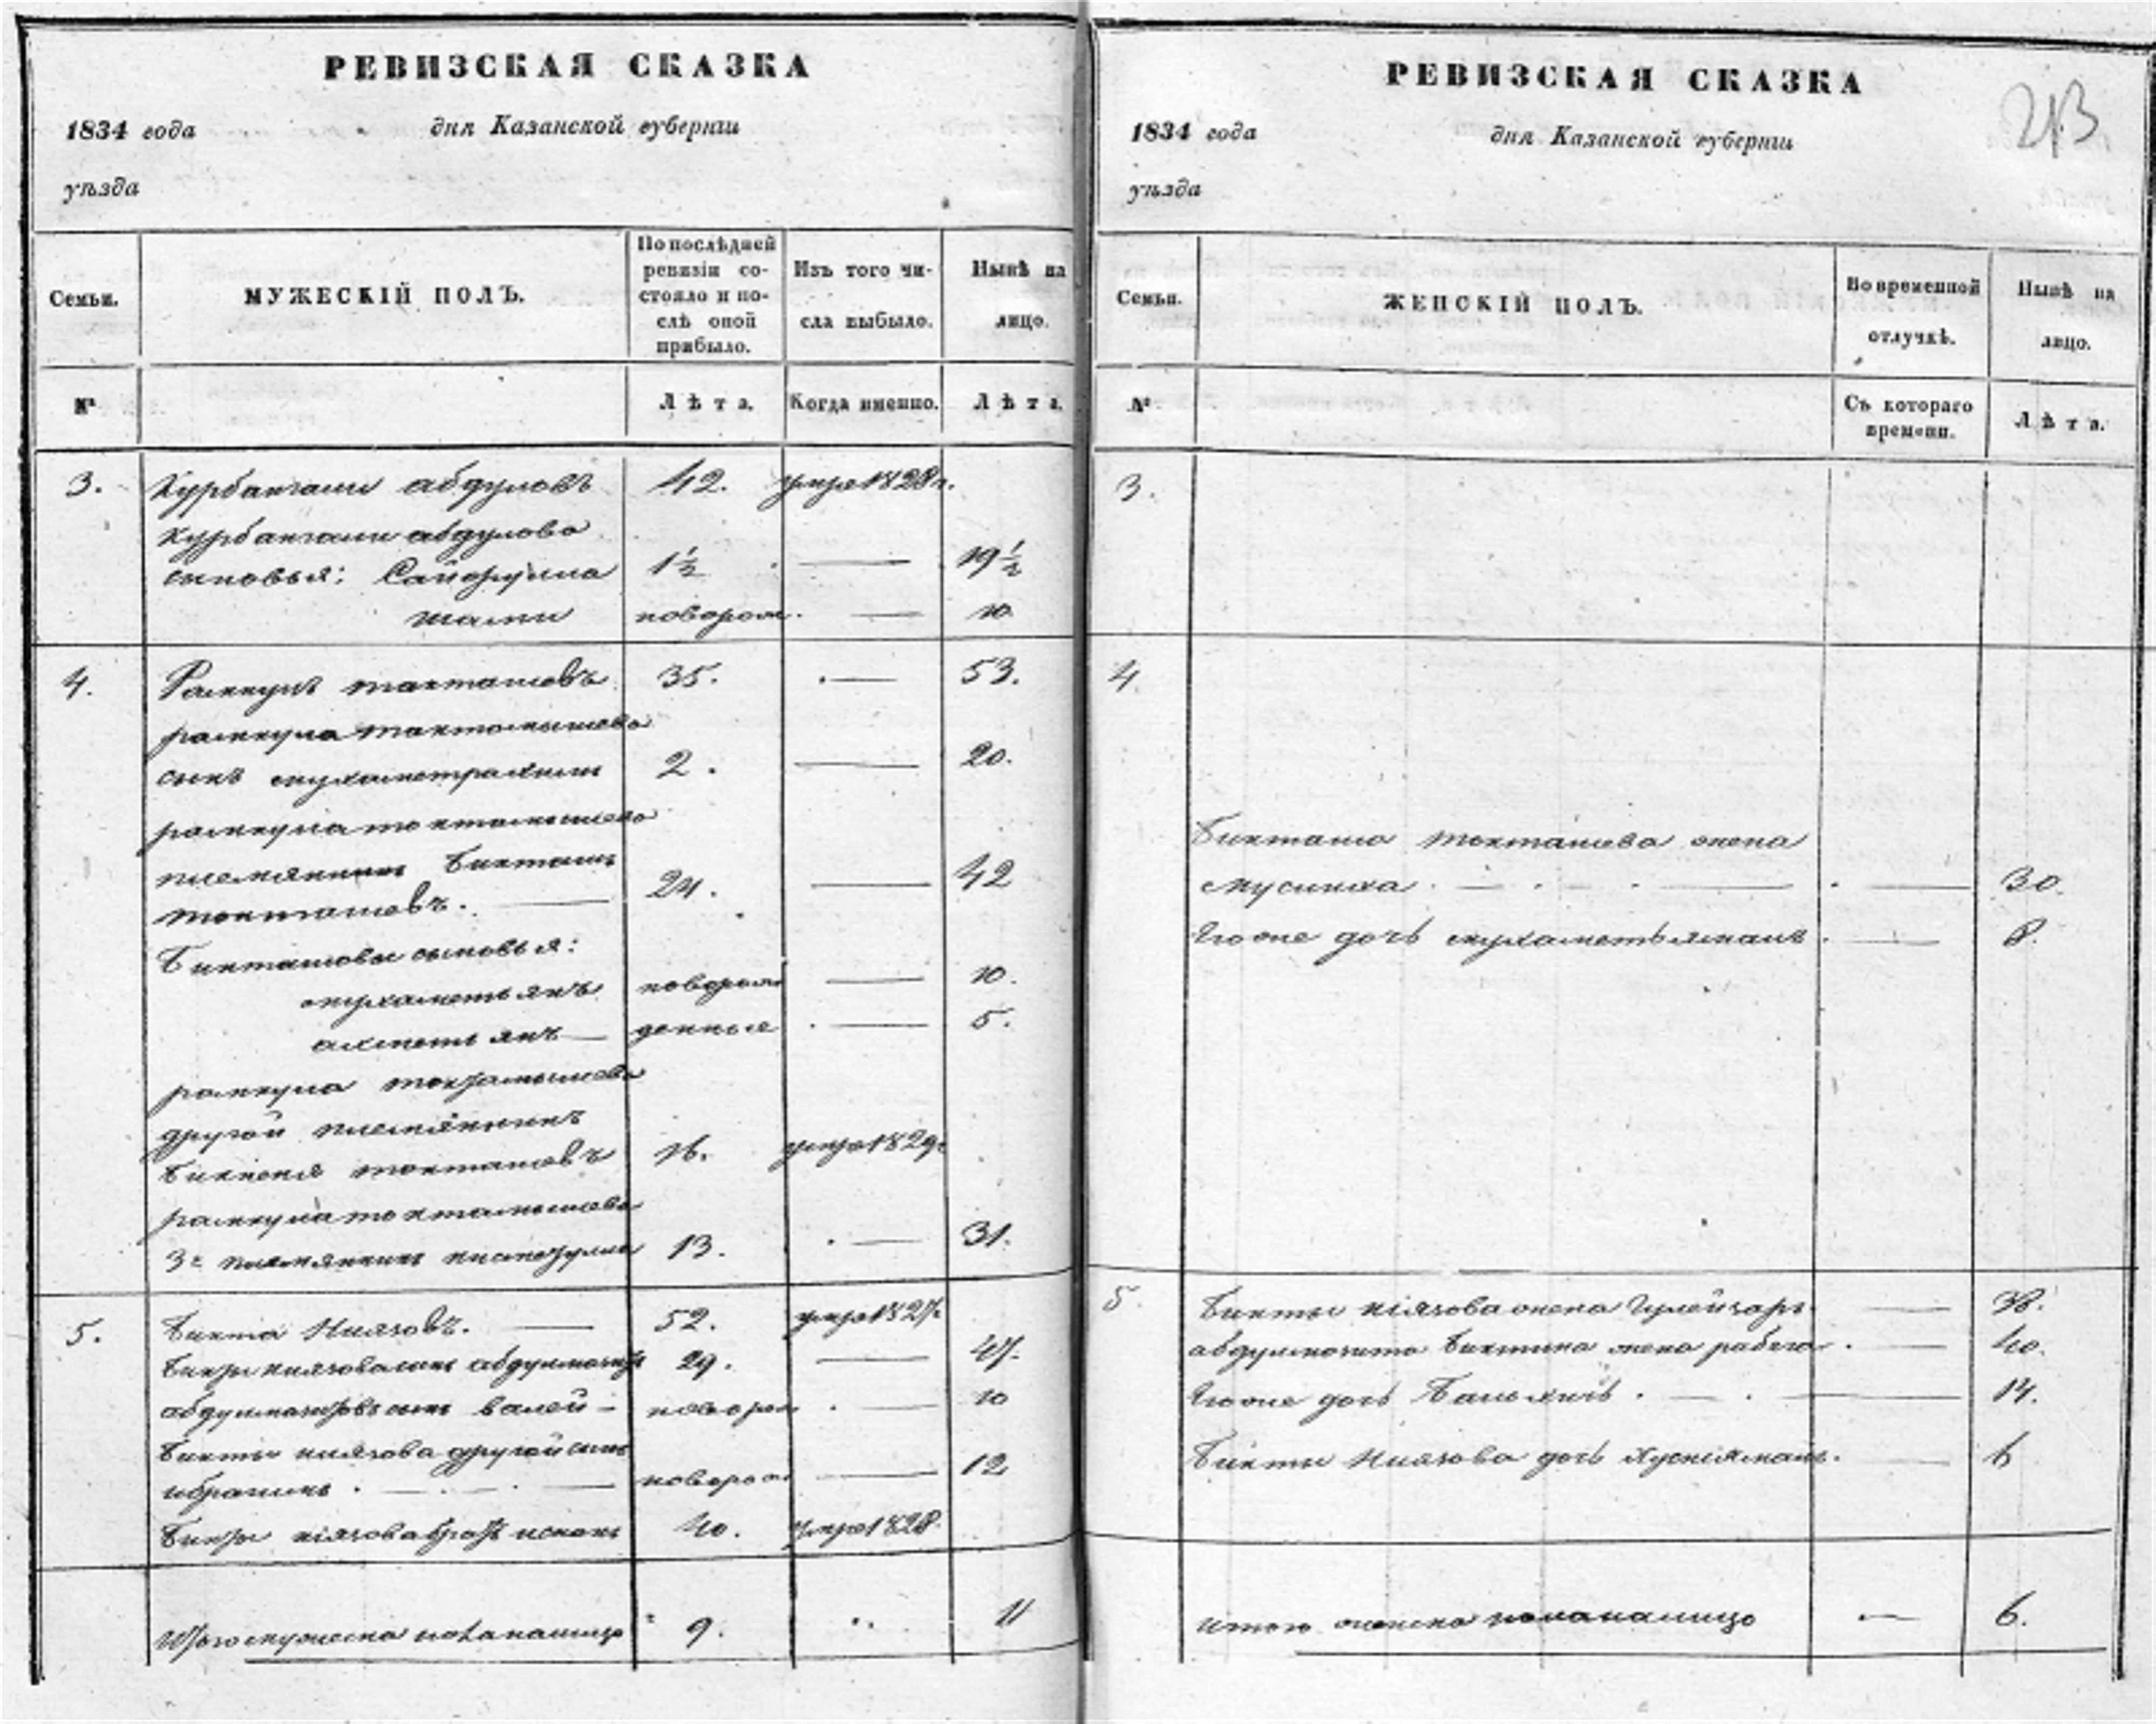 РЕВИЗСКАЯ СКАЗКА
1834 года дня Казанской губернiи
уѣзда
Семьи. МУЖЕСКIЙ ПОЛЪ. По послѣдней ревизiи состояло и послѣ оной прибыло. Изъ того числа выбыло. Нынѣ на лицо.
№ Лѣта. Когда именно. Лѣта.
3. Курбангали абдуловъ 42. умре 1828 г.
Курбангали абдулова
сыновья: Сайфулла 1½ — 19½
шами новорож. — 10
4. Рамкулъ такташевъ 35. — 53.
рамкула токтамышева
сынъ мухаметрахим 2. — 20.
рамкула токтамышева
племянникъ Бикташъ 24. — 42
токташевъ. —
Бикташевы сыновья:
мухаметьянъ новорож — 10.
ахметьянъ — денные — 5.
рамкула токтамышева
другой племянникъ
Бикеня токташевъ 16. умре 1829 г
рамкула токтамышева
3й племянникъ 13. — 31.
5. Бикта Ниязовъ. — 52. умре 1827
Бикты ниязова сынъ 29. — 47.
сынъ валей — новорож — 10
Бикты ниязова другой сынъ
ибрагимъ. — новорож — 12
Бикты ніязова братъ 40. умре 1828.
Итого мужеска пола налицо 9. 11
РЕВИЗСКАЯ СКАЗКА
213
1834 года дня Казанской губернiи
уѣзда
Семьи. ЖЕНСКIЙ ПОЛЪ. Во временной отлучкѣ. Нынѣ на лицо.
№ Съ котораго времени. Лѣта.
3.
4.
Бикташа токташева жена
мусинха. — — 30.
Его же дочь мухаметьямалъ — 8.
5. Бикты ніязова жена — 38.
Биктина жена рабига. — 40.
Его же дочь. — 14.
Бикты Ниязова дочь. — 6
итого женска пола налицо — 6.